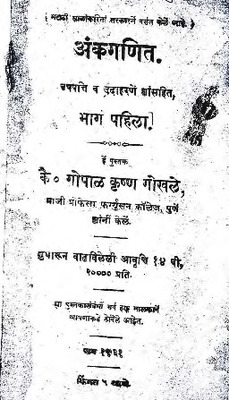 ( मराठी शाळांकरितां सरकारनें मंजूर केलें आहे. )
अंकगणित.
उपपत्ति व उदाहरणें ह्यांसहित,
भाग पहिला.
हें पुस्तक
कै० गोपाळ कृष्ण गोखले,
माजी प्रोफेसर फर्ग्युसन कॉलेज, पुणें
ह्यांनीं केलें.
सुधारून वाढविलेली आवृत्ति १४ वी,
१०००० प्रति.
ह्या पुस्तकासंबंधीं सर्व हक्क मालकानें
आपणाकडे ठेविले आहेत.
किंमत ५ आणे.